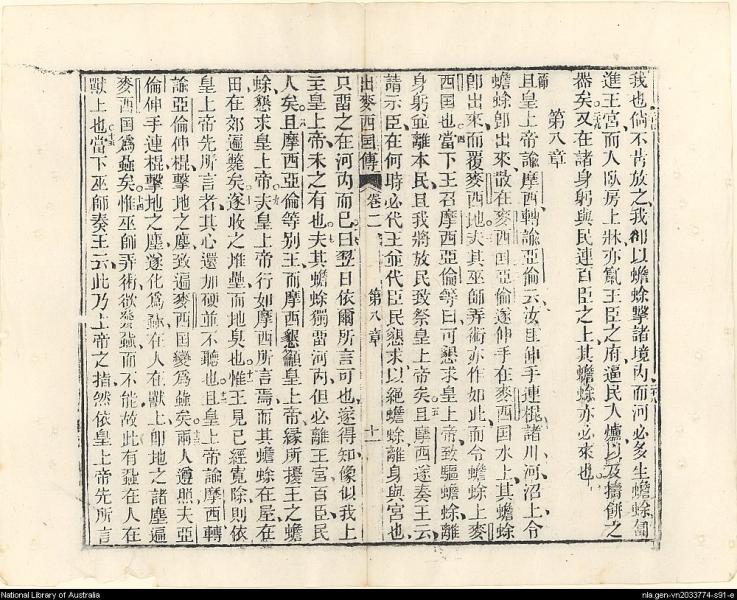 我也倘不肯放之我卽以蟾蜍擊諸境內而河必多生蟾蜍匐
進王宮而入臥房上牀亦竄王臣之府逼民入爐以及擣餅之
器矣又在諸身躬與民連百臣之上其蟾蜍亦必來也
第八章
且皇上帝諭摩西轉諭亞倫云汝生伸手連棍諸川河沼上令
蟾蜍卽出來散在麥西国亞倫遂伸手在麥西国水上其蟾蜍
卽出來而覆麥西地夫其巫師弄術亦作如此而令蟾蜍上麥
西国也當下王召摩西亞倫等曰可懇求皇上帝致驅蟾蜍離
身躬並離本民且我將放民致祭皇上帝矣且摩西遂奏王云
請示臣在何時必代王並代臣民懇求以絕蟾蜍離身與宮也
出麥西国傳 卷二 第八章 十一
只畱之在河內而已曰翌日依爾所言可也遂得知像似我上
主皇上帝未之有也夫其蟾蜍獨畱河內但必離王宮百臣民
人矣且摩西亞倫等別王而摩西懇籲皇上帝緣所擾王之蟾
蜍懇求皇上帝夫皇上帝行如摩西所言焉而其蟾蜍在屋在
田在郊遍斃矣遂收之堆壘而地臭也惟王見已經寬除則依
皇上帝先所言者其心還加硬並不聽也且皇上帝諭摩西轉
諭亞倫伸棍擊地之塵致遍麥西国變爲蝨矣兩人遵照夫亞
倫伸手連棍擊地之塵遂化爲蝨在人在獸上卽地之諸塵遍
麥西国爲蝨矣惟巫師弄術欲發蝨而不能故此有蝨在人在
獸上也當下巫師奏王云此乃上帝之指然依皇上帝先所言
National Library of Australia
nla.gen-vn2033774-s91-e